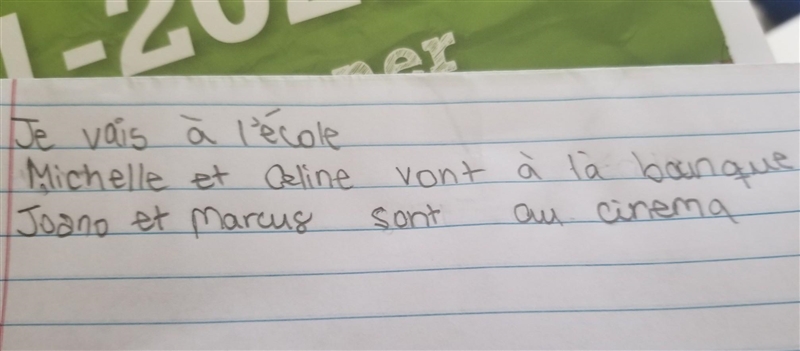 1-202
ner
Je vais à l'école
Michelle et Celine vont à là banque
Joano et Marcus sont au cinema